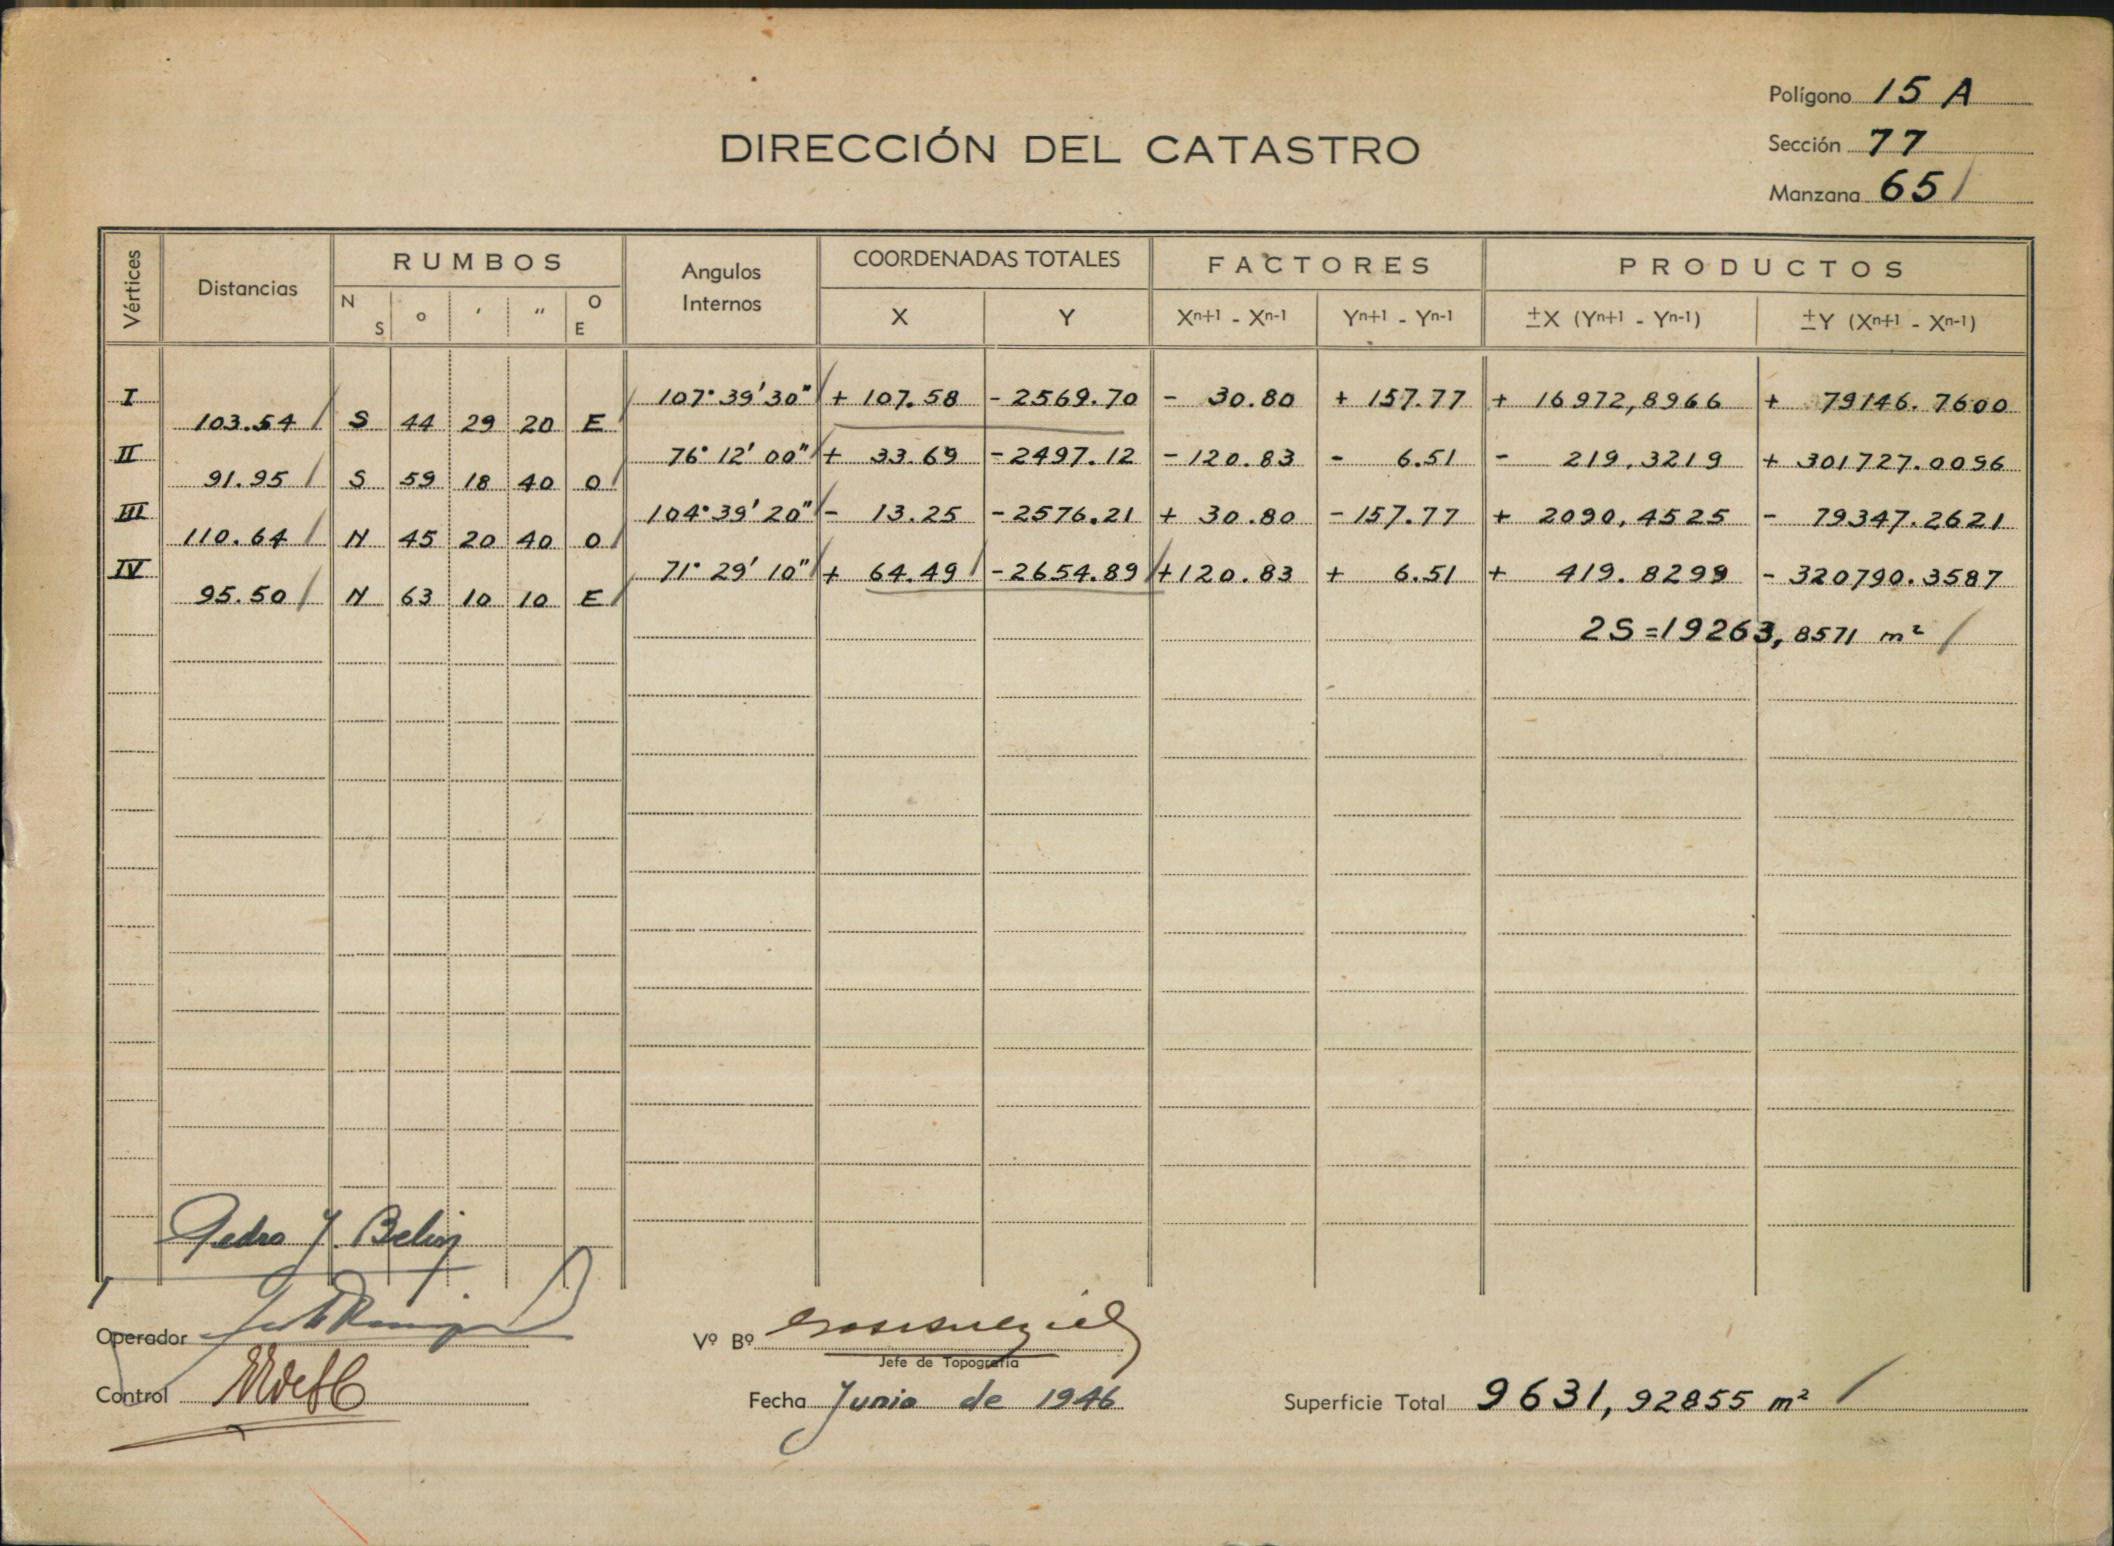 Polígono 15 A
DIRECCIÓN DEL CATASTRO
Sección 77
Manzana 65
Vértices Distancias RUMBOS Angulos Internos COORDENADAS TOTALES FACTORES PRODUCTOS
N S ° ' " O E X Y Xn+1 - Xn-1 Yn+1 - Yn-1 ±X (Yn+1 - Yn-1) ±Y (Xn+1 - Xn-1)
I 107° 39' 30" + 107.58 - 2569.70 - 30.80 + 157.77 + 16972,8966 + 79146.7600
103.54 S 44 29 20 E
II 76° 12' 00" + 33.69 - 2497.12 - 120.83 - 6.51 - 219,3219 + 301727.0096
91.95 S 59 18 40 O
III 104° 39' 20" - 13.25 - 2576.21 + 30.80 - 157.77 + 2090,4525 - 79347.2621
110.64 N 45 20 40 O
IV 71° 29' 10" + 64.49 - 2654.89 + 120.83 + 6.51 + 419.8299 - 320790.3587
95.50 N 63 10 10 E
2S = 19263,8571 m²
Pedro J. Belin
Operador
Vº Bº
Jefe de Topografía
Control
Fecha Junio de 1946
Superficie Total 9631,92855 m²